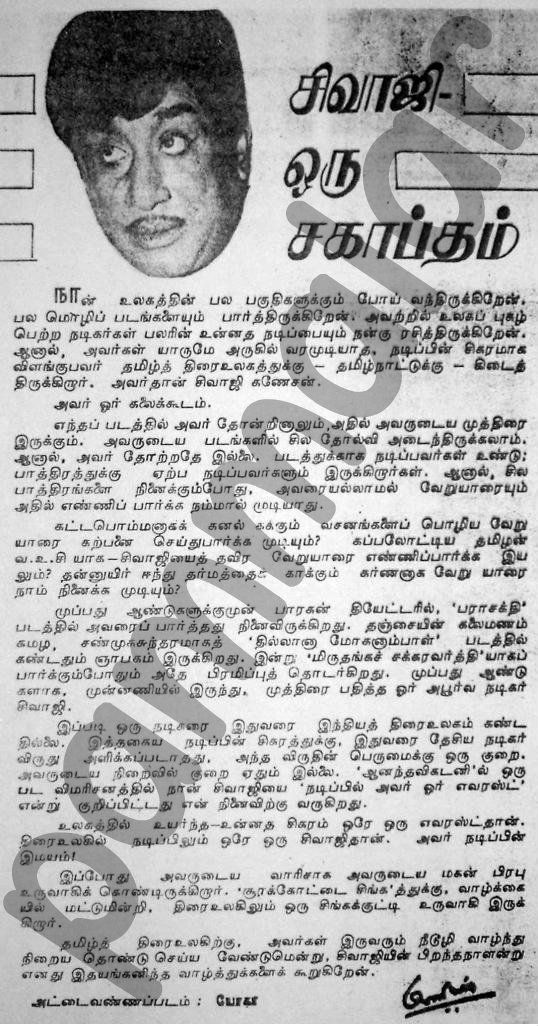 சிவாஜி-
ஒரு
சகாப்தம்
நான் உலகத்தின் பல பகுதிகளுக்கும் போய் வந்திருக்கிறேன்.
பல மொழிப் படங்களையும் பார்த்திருக்கிறேன். அவற்றில் உலகப் புகழ்
பெற்ற நடிகர்கள் பலரின் உன்னத நடிப்பையும் நன்கு ரசித்திருக்கிறேன்.
ஆனால், அவர்கள் யாருமே அருகில் வரமுடியாத, நடிப்பின் சிகரமாக
விளங்குபவர் தமிழ்த் திரைஉலகத்துக்கு - தமிழ்நாட்டுக்கு - கிடைத்
திருக்கிறார். அவர்தான் சிவாஜி கணேசன்.
அவர் ஓர் கலைக்கூடம்.
எந்தப் படத்தில் அவர் தோன்றினாலும், அதில் அவருடைய முத்திரை
இருக்கும். அவருடைய படங்களில் சில தோல்வி அடைந்திருக்கலாம்.
ஆனால், அவர் தோற்றதே இல்லை. படத்துக்காக நடிப்பவர்கள் உண்டு;
பாத்திரத்துக்கு ஏற்ப நடிப்பவர்களும் இருக்கிறார்கள். ஆனால், சில
பாத்திரங்களை நினைக்கும்போது, அவரையல்லாமல் வேறுயாரையும்
அதில் எண்ணிப் பார்க்க நம்மால் முடியாது.
கட்டபொம்மனாகக் கனல் கக்கும் வசனங்களைப் பொழிய வேறு
யாரை கற்பனை செய்துபார்க்க முடியும்? கப்பலோட்டிய தமிழன்
வ.உ.சி யாக-சிவாஜியைத் தவிர வேறுயாரை எண்ணிப்பார்க்க இய
லும்? தன்னுயிர் ஈந்து தர்மத்தைக் காக்கும் கர்ணனாக வேறு யாரை
நாம் நினைக்க முடியும்?
முப்பது ஆண்டுகளுக்குமுன் பாரகன் தியேட்டரில், 'பராசக்தி'
படத்தில் அவரைப் பார்த்தது நினைவிருக்கிறது. தஞ்சையின் கலைமணம்
கமழ, சண்முகசுந்தரமாகத் 'தில்லானா மோகனாம்பாள்' படத்தில்
கண்டதும் ஞாபகம் இருக்கிறது. இன்று 'மிருதங்கச் சக்கரவர்த்தி'யாகப்
பார்க்கும்போதும் அதே பிரமிப்புத் தொடர்கிறது. முப்பது ஆண்டு
களாக, முன்னணியில் இருந்து, முத்திரை பதித்த ஓர் அபூர்வ நடிகர்
சிவாஜி.
இப்படி ஒரு நடிகரை இதுவரை இந்தியத் திரைஉலகம் கண்ட
தில்லை. இத்தகைய நடிப்பின் சிகரத்துக்கு, இதுவரை தேசிய நடிகர்
விருது அளிக்கப்படாதது, அந்த விருதின் பெருமைக்கு ஒரு குறை.
அவருடைய நிறைவில் குறை ஏதும் இல்லை. 'ஆனந்தவிகடனி'ல் ஒரு
பட விமரிசனத்தில் நான் சிவாஜியை 'நடிப்பில் அவர் ஓர் எவரஸ்ட்'
என்று குறிப்பிட்டது என் நினைவிற்கு வருகிறது.
உலகத்தில் உயர்ந்த-உன்னத சிகரம் ஒரே ஒரு எவரஸ்ட்தான்.
திரைஉலகில் நடிப்பிலும் ஒரே ஒரு சிவாஜிதான். அவர் நடிப்பின்
இமயம்!
இப்போது அவருடைய வாரிசாக அவருடைய மகன் பிரபு
உருவாகிக் கொண்டிருக்கிறார். 'சூரக்கோட்டை சிங்க'த்துக்கு, வாழ்க்கை
யில் மட்டுமின்றி, திரைஉலகிலும் ஒரு சிங்கக்குட்டி உருவாகி இருக்
கிறார்.
தமிழ்த் திரைஉலகிற்கு, அவர்கள் இருவரும் நீடூழி வாழ்ந்து
நிறைய தொண்டு செய்ய வேண்டுமென்று, சிவாஜியின் பிறந்தநாளன்று
எனது இதயங்கனிந்த வாழ்த்துக்களைக் கூறுகிறேன்.
அட்டைவண்ணப்படம் : யோகா
pammalar